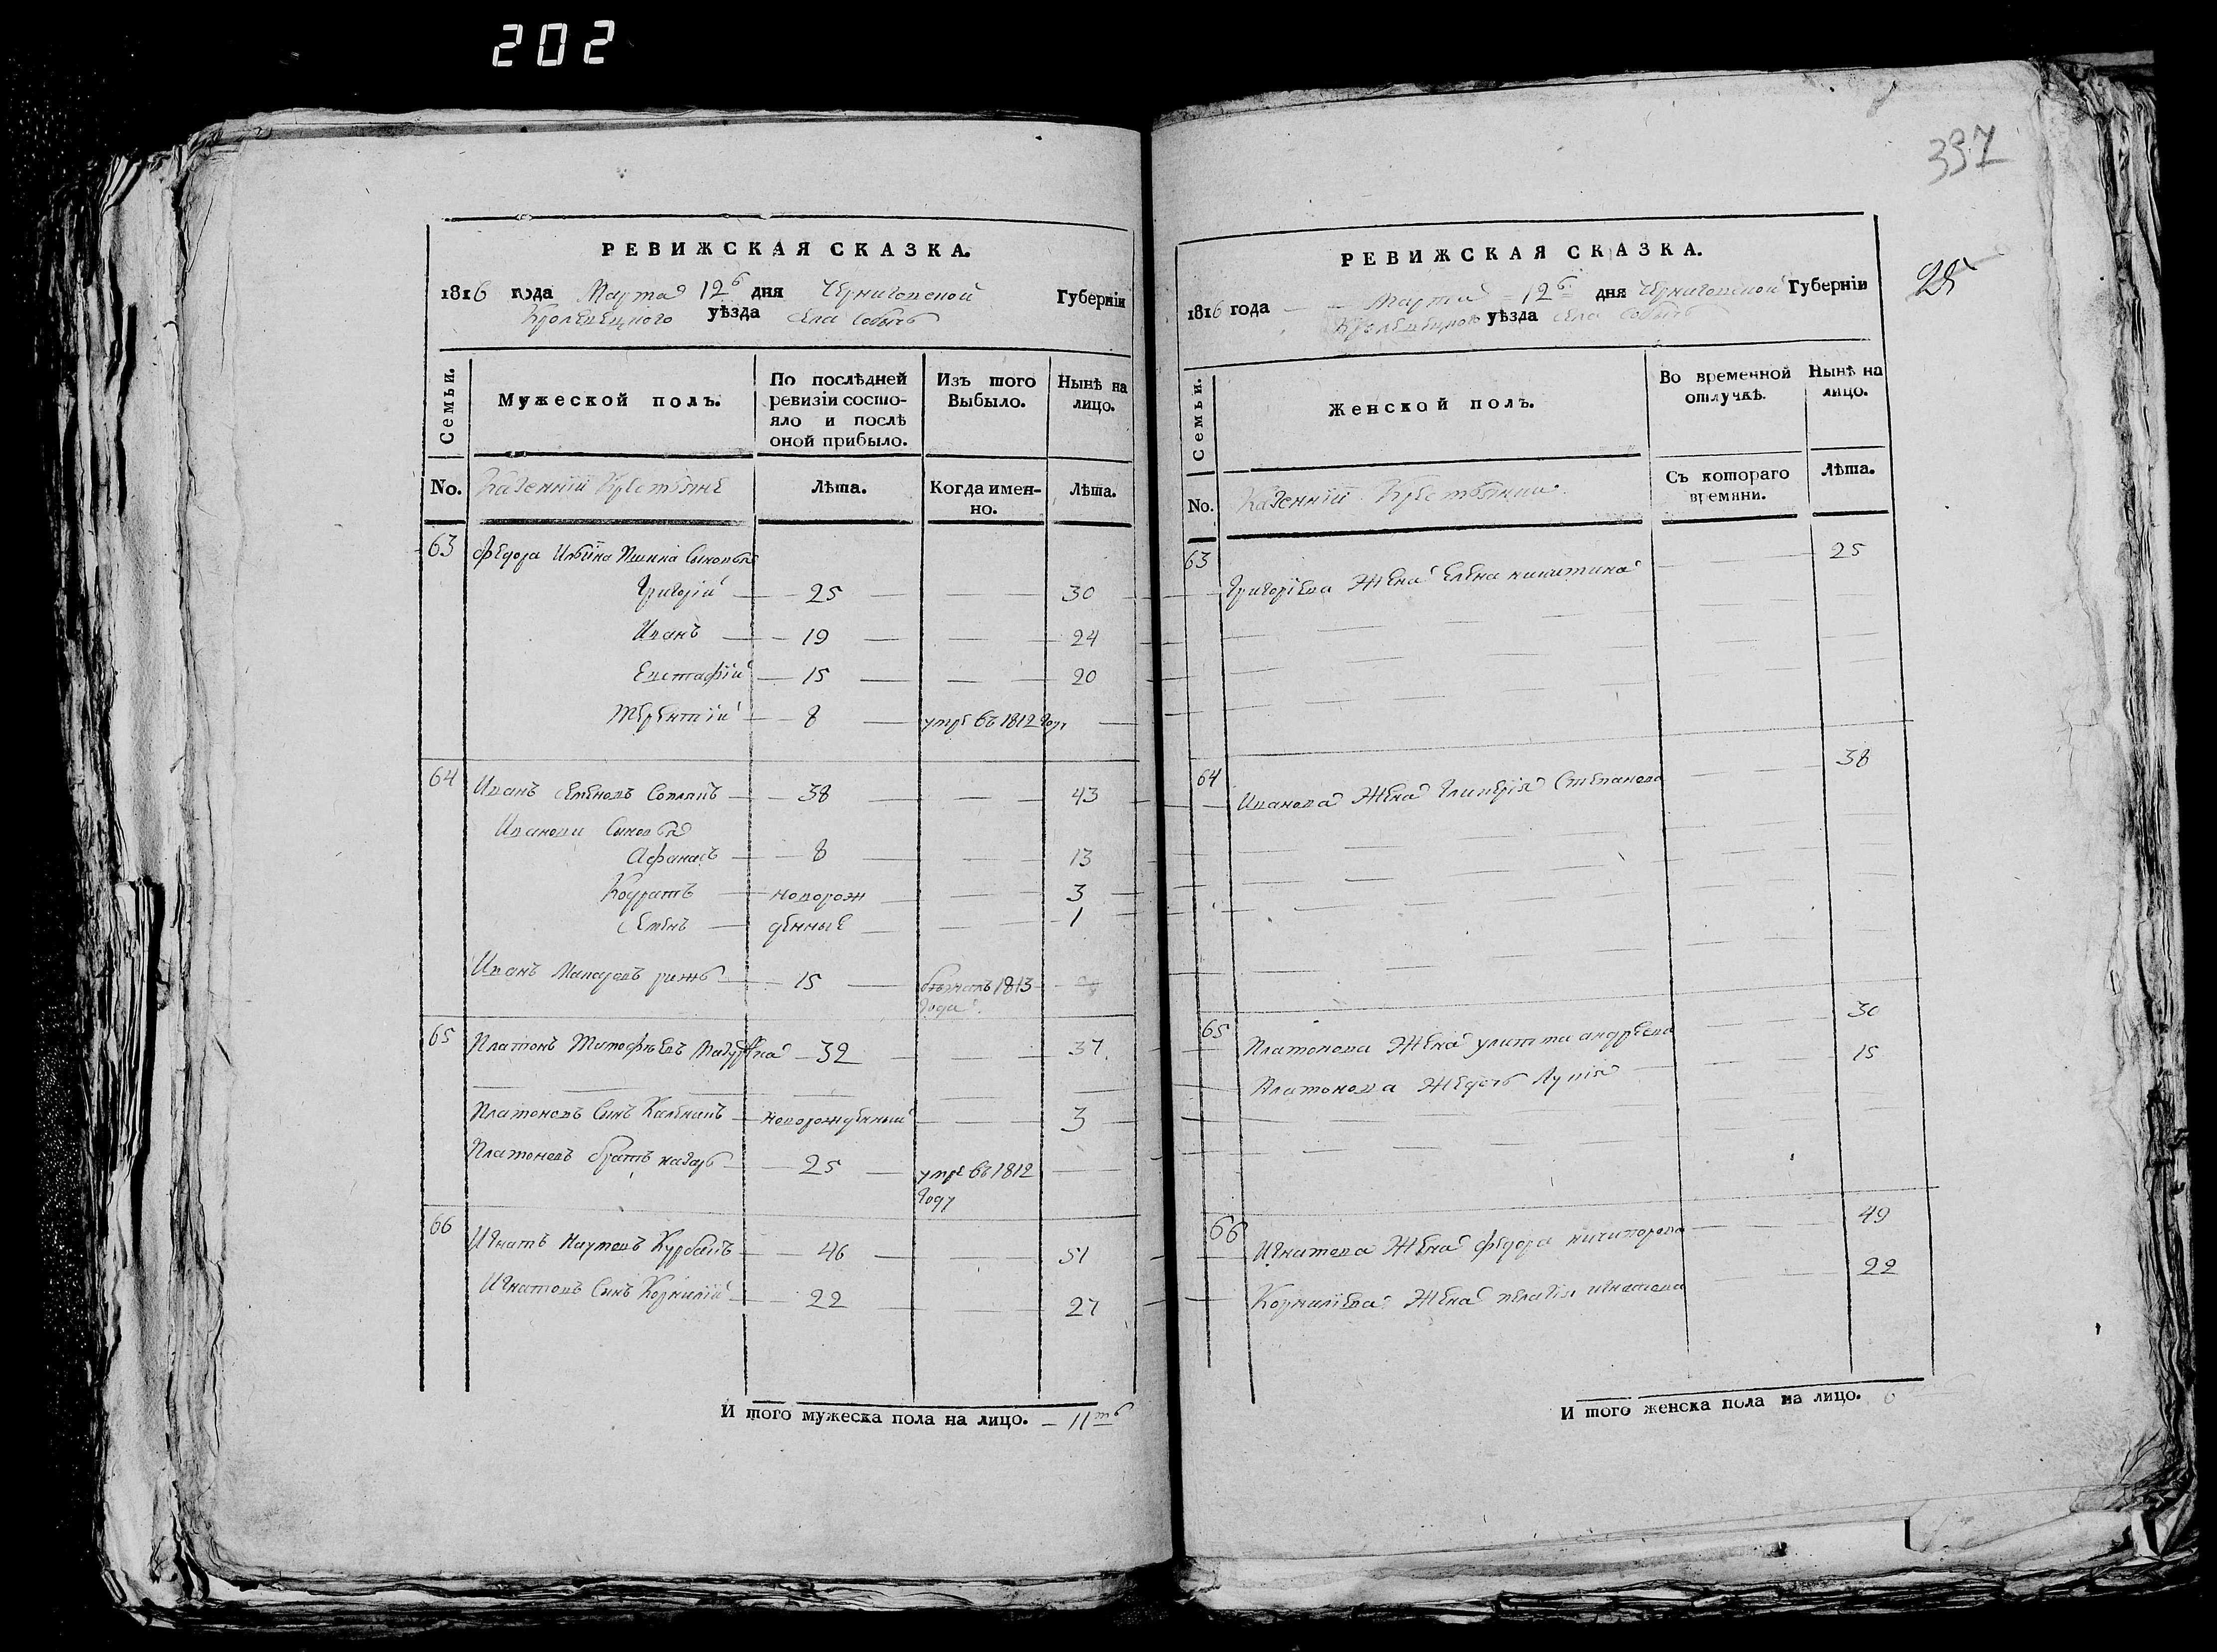 202
РЕВИЖСКАЯ СКАЗКА.
1816 года Марта 12 дня Черниговской Губерніи
Кролевецкого уѣзда села Собычь
Семьи.
Мужеской полъ.
По послѣдней ревизіи состояло и послѣ оной прибыло.
Изъ того Выбыло.
Нынѣ на лицо.
No. Казенніи Крестьяне
Лѣта.
Когда именно.
Лѣта.
63 Федора Ильина сыновья
Григорій 25 30
Иванъ 19 24
Евстафій 15 20
Терентій 8 умре въ 1812 году
64 Иванъ Семеновъ 38 43
Иванови Сыновья
Афанасъ 8 13
Кодратъ новорож 3
Семенъ денные 1
Иванъ Макаровъ 15 1813
года
65 Платонъ Тимофѣевъ 32 37
Платоновъ Синъ новорожденный 3
Платоновъ братъ назарь 25 умре въ 1812
году
66 Игнатъ Наумовъ 46 51
Игнатовъ Синъ Корнилій 22 27
И того мужеска пола на лицо. 11ть
397
25
РЕВИЖСКАЯ СКАЗКА.
1816 года Марта 12 дня Черниговской Губерніи
Кролевецкого уѣзда села Собычь
Семьи.
Женской полъ.
Во временной отлучкѣ.
Нынѣ на лицо.
No. Казенніи Крестьянки.
Съ котораго времяни.
Лѣта.
63 Григоріева Жена Елена никитина 25
64 Иванова Жена Гликерія Степанова 38
65 Платонова Жена улитта андрѣева 30
Платонова 15
66 Игнатова Жена федора ничипорова 49
Корниліева Жена пелагія игнатова 22
И того женска пола на лицо. 6